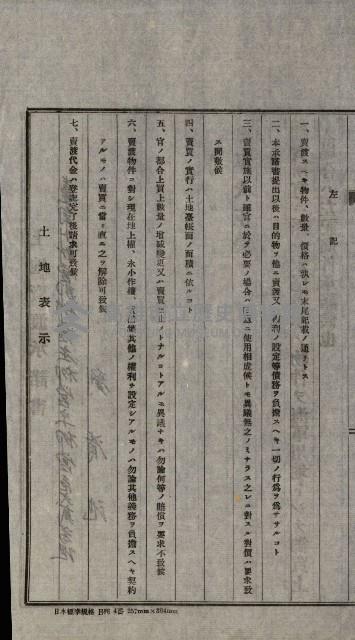 左記
一、賣渡スヘキ物件、數量、價格ハ孰レモ末尾記載ノ通リトス
二、本承諾書提出以後ハ目的物ヲ他ニ賣渡又ハ權利ノ設定等債務ヲ負擔スヘキ一切ノ行爲ヲ爲ササルコト
三、賣買實施以前ト雖官ニ於テ必要ノ場合ハ 使用相成候トモ異議無之ノミナラス之レニ對スル對價ハ要求致
ス間敷候
四、賣買ノ實行ハ土地臺帳面ノ面積ニ依ルコト
五、官ノ都合上買上數量ノ增減變更又ハ賣買 ナルコトアルモ異議ナキハ勿論何等ノ賠償ヲ要求不致候
六、賣渡物件ニ對シ現在地上權、永小作權、 其他ノ權利ヲ設定シアルモノハ勿論其他義務ヲ負擔スヘキ契約
アルモノハ賣買ニ當リ直ニ之ヲ解除可致候
七、賣渡代金ハ登記完了後請求可致候
土地表示
日本標準規格 B列 4番 257mm×364mm